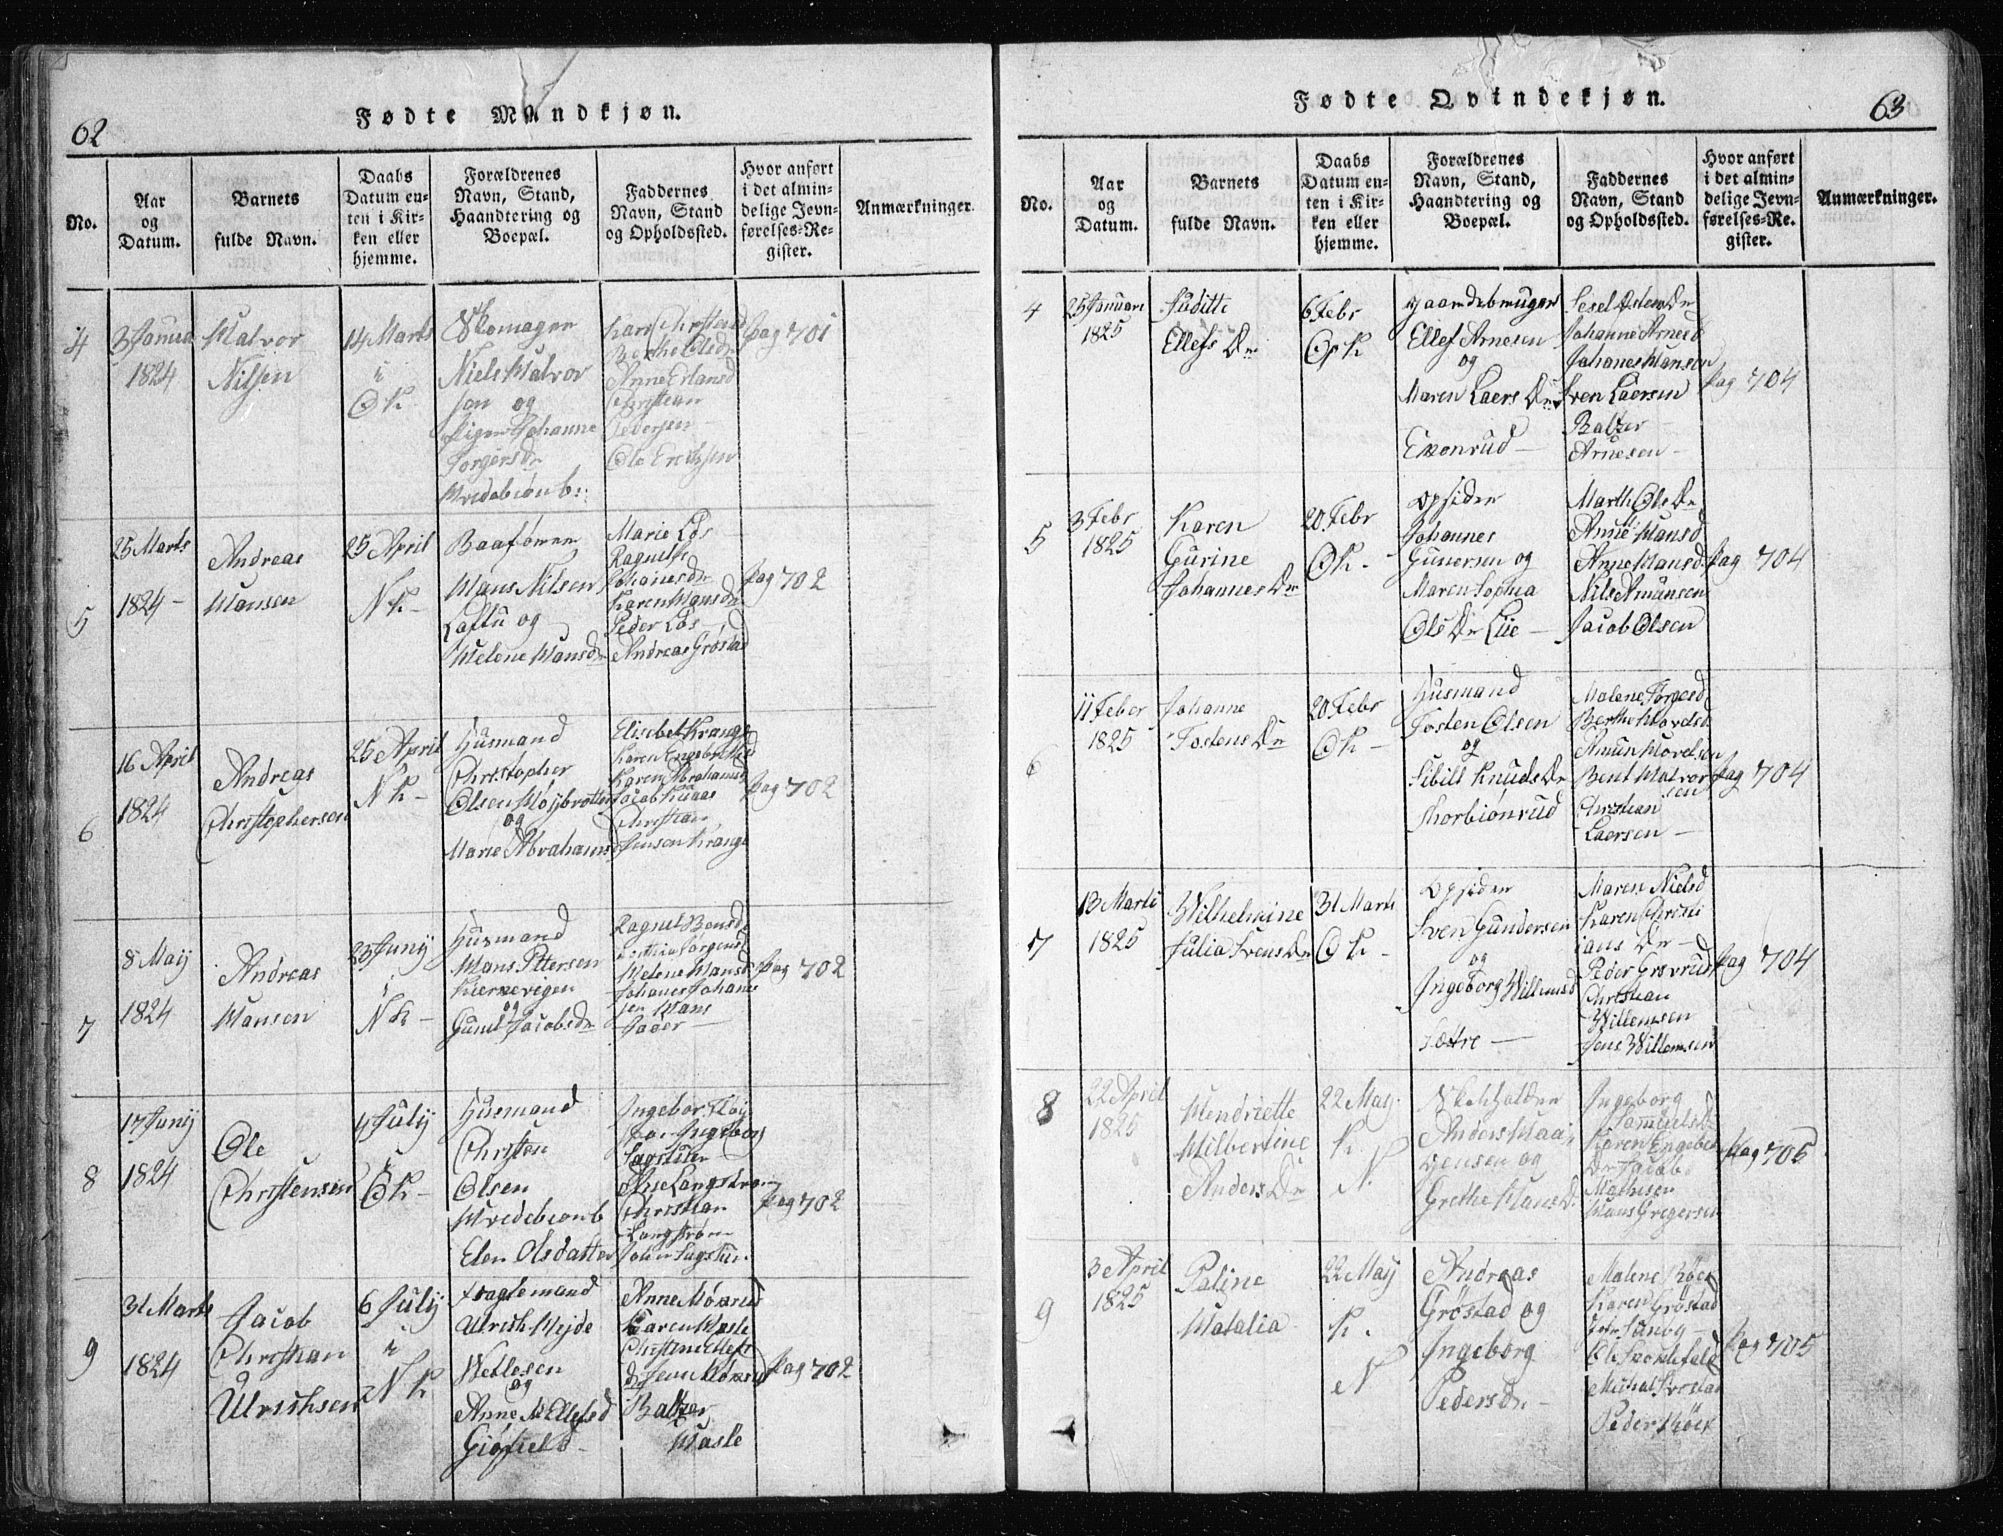 62
Fødte Mandkjøn.
No.
Aar
og
Datum.
Barnets
fulde Navn.
Daabs
Datum en-
ten i Kir-
ken eller
hjemme.
Forældrenes
Navn, Stand,
Haandtering og
Boepæl.
Faddernes
Navn, Stand
og Opholdssted.
Hvor anført
i det almin-
delige Jevn-
førelses-Re-
gister.
Anmærkninger.
4
3 Janua
1824
Halvor
Nilsen
14 Marts
i
O K.
Skomager
Niels Halvor
sen og
Johanne
Torgersdr
Hvidebiönb:
Karen
Berthe Olsdr
Anne Erlansd
Christian
Pedersen
Ole Erichsen
Pag 701
5
25 Marts
1824 -
Andreas
Hansen
25 April
N K -
Baasömen
Hans Nilsen
Løftu og
Helene Hansdr
Marie Løs
Ragnilse
Johanesdr
Karen Hansdr
Peder Løs -
Andreas Gröstad
Pag 702
6
16 April
1824
Andreas
Christophersen
25 April
N K -
Husmand
Christopher
Olsen Höjbrotten
og
Marie Abrahamsd
Elisabet Krange
Karen Engebretsd
Karen Abrahamsd
Jacob Knaas
Christian
Jensen Krange
Pag 702
7
8 Maij
1824
Andreas
Hansen
23 Junij
i
N K -
Husmand
Hans Pettersen
Kiernevigen
og
Gunil Jacobsdr
Ragnil Bensd
Torgensd
Helene Hansd
Johanes Johanne
sen Hans
Pag 702
8
17 Junij
1824
Ole
Christensen
4 July
i
O K -
Husmand
Christen
Olsen
Hvidebionb
Elen Olsdatter
Ingebor
Ingeborg
Sagstuen
Ane Langström
Christian
Langström
Johan Sagstuen
Pag 702
9
31 Marts
1824
Jacob
Christian
Ulrichsen
6 July
N K
Foglemand
Ulrich Hejde
Wetlesen
og
Anne M Ellefsd
Giöfield -
Anne Mörsrud
Karen Hasle
Christine Ellefs
dr Jens Mörsrud
Balzer
Hasle
Pag 702
Fødte Qvindekjøn.
63
No.
Aar
og
Datum.
Barnets
fulde Navn.
Daabs
Datum en-
ten i Kir-
ken eller
hjemme.
Forældrenes
Navn, Stand,
Haandtering og
Boepæl.
Faddernes
Navn, Stand
og Opholdssted.
Hvor anført
i det almin-
delige Jevn-
førelses-Re-
gister.
Anmærkninger.
4
25 Januari
1825
Juditte
Ellefs Dr
6 Febr
O K
Gaardebruger
Ellef Arnesen
og
Maren Laers Dr
Exonrud -
Lesel Ostens Dr
Johanne Arnesd
Johanes Hansen
Sven Laersen
Balzer -
Arnesen -
Pag 704
5
3 Febr
1825
Karen
Gurine
Johannes Dr
20 Febr
O K -
Opsider
Johannes
Gunersen og
Maren Sophia
Ols Dr Lüe -
Marth Ols Dr
Anne Hansd
Anne Hansd
Nils Amunsen
Jacob Olsen
Pag 704
6
11 Febr
1825
Johanne
Tostens Dr
20 Febr
O K -
Husmand
Tosten Olsen
og
Sibill Knuds Dr
Thorbiönrud
Malene Torgesd
Berthe Hovelsd
Amun Hovelsen
Bent Halvor
sen
Christian
Laersen -
Pag 704
7
13 Marti
1825
Wilhelmine
Julia Svens Dr
31 Marti
O K -
Opsider
Sven Gundersen
og
Ingeborg Willemsd
Sætre -
Maren Nielsd
Karen Christi
ians Dr -
Peder Grovrud
Christian
Willemsen
Jens Willemsen
Pag 704
8
22 April
1825
Hendriette
Wilbertine
Anders Dr
22 Maij
K.
N
Skibholder
Anders Haa
Jensen og
Grethe Hans Dr
Ingeborg
Samuels Dr
Karen Engebre
Dr Jacob
Mathisen
Hans Gregersen
Pag 705
9
3 April
1825
Paline
Natalia
22 Maij
K.
N
Andreas
Gröstad og
Ingeborg
Pedersdr -
Malene Röer
Karen Gröstad
Ole
Michal Gröstad
Peder Röer
Pag 705